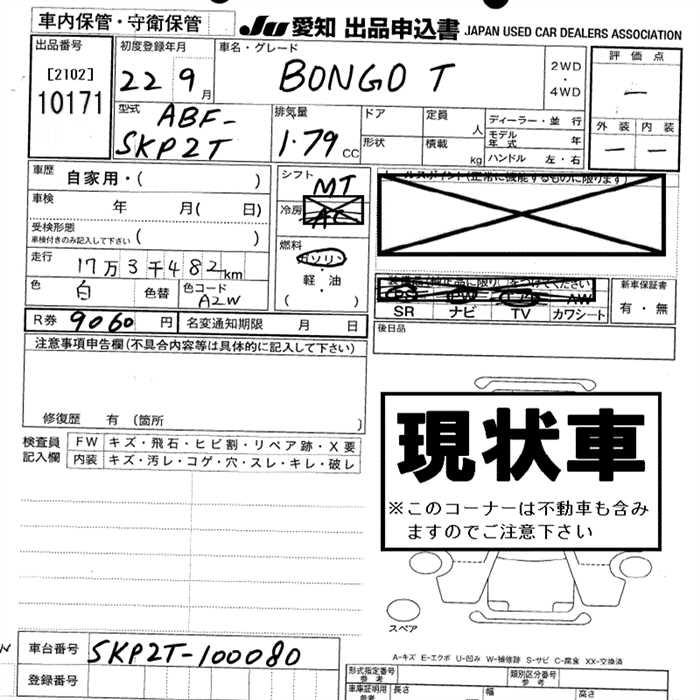 車内保管・守衛保管
JU 愛知 出品申込書 JAPAN USED CAR DEALERS ASSOCIATION
出品番号
[2102]
10171
初度登録年月
22 9月
車名・グレード
BONGO T
2WD
・
4WD
評価点
—
外装 内装
— —
型式
ABF-
SKP2T
排気量
1.79 CC
ドア
定員
人
形状
積載
kg
ディーラー・並 行
モデル年式 年
ハンドル 左・右
車歴 自家用・( )
車検 年 月( 日)
受検形態
車検付きのみ記入して下さい ( )
走行 17万3千482km
色 白 色替 色コード A2W
R券 9060円 名変通知期限 月 日
シフト MT
冷房 AC
燃料
ガソリン
・
軽・油
( )
セールスポイント(正常に機能するものに限ります)
SR ナビ TV カワシート
AW
新車保証書
有・無
後日品
注意事項申告欄(不具合内容等は具体的に記入して下さい)
修復歴 有 (箇所 )
検査員記入欄
FW キズ・飛石・ヒビ割・リペア跡・X要
内装 キズ・汚レ・コゲ・穴・スレ・キレ・破レ
現状車
※このコーナーは不動車も含み
ますのでご注意下さい
スペア
A-キズ E-エクボ U-凹み W-補修跡 S-サビ C-腐食 XX-交換済
車台番号 SKP2T-100080
登録番号
形式指定番号 参考
類別区分番号 参考
車庫証明用 参考 長さ 幅 高さ